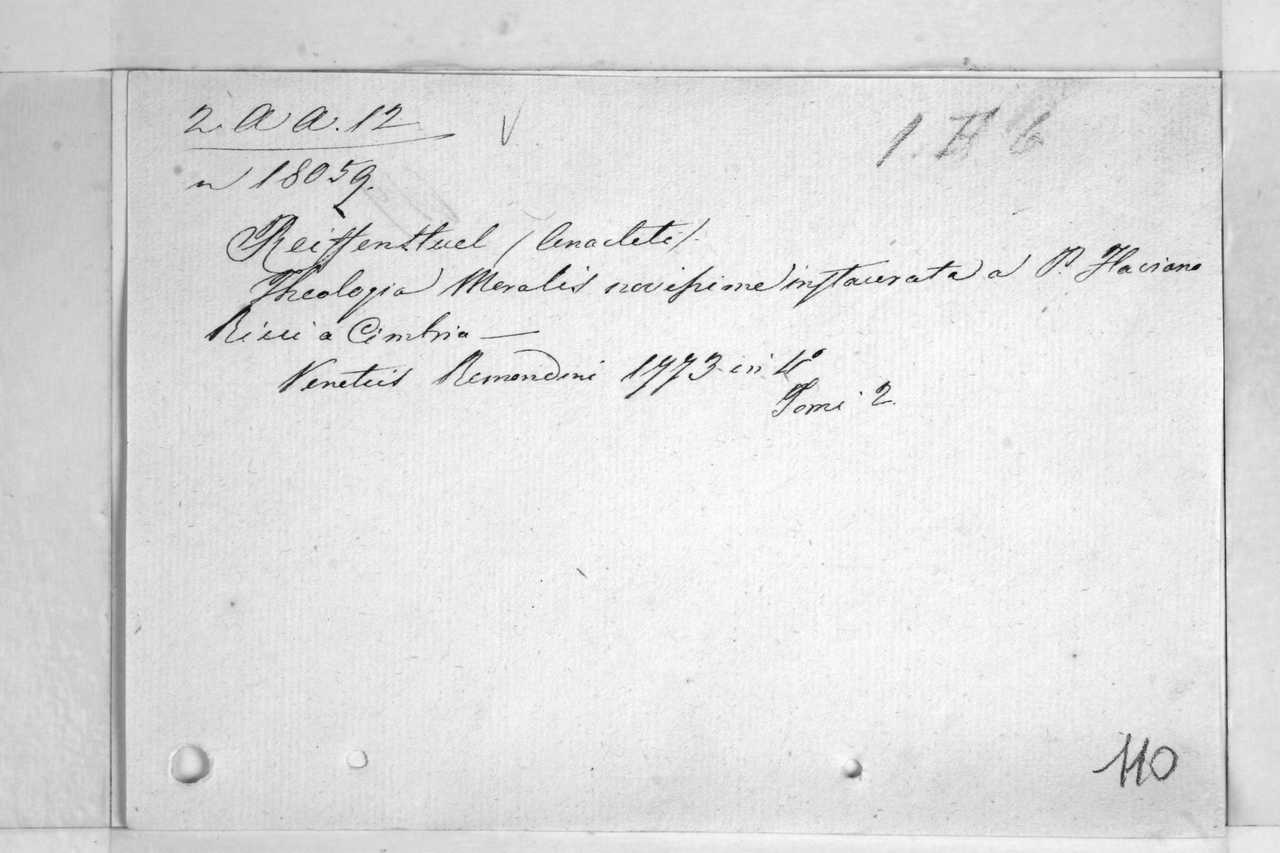 2. A A. 12
1. F 6
n 18059.
Reiffenstuel (Anacleti).
Theologia Moralis novissime instaurata a P. Flaviano
Ricci a Cimbria —
Venetiis Remondini 1773 in 4°
Tomi 2.
110